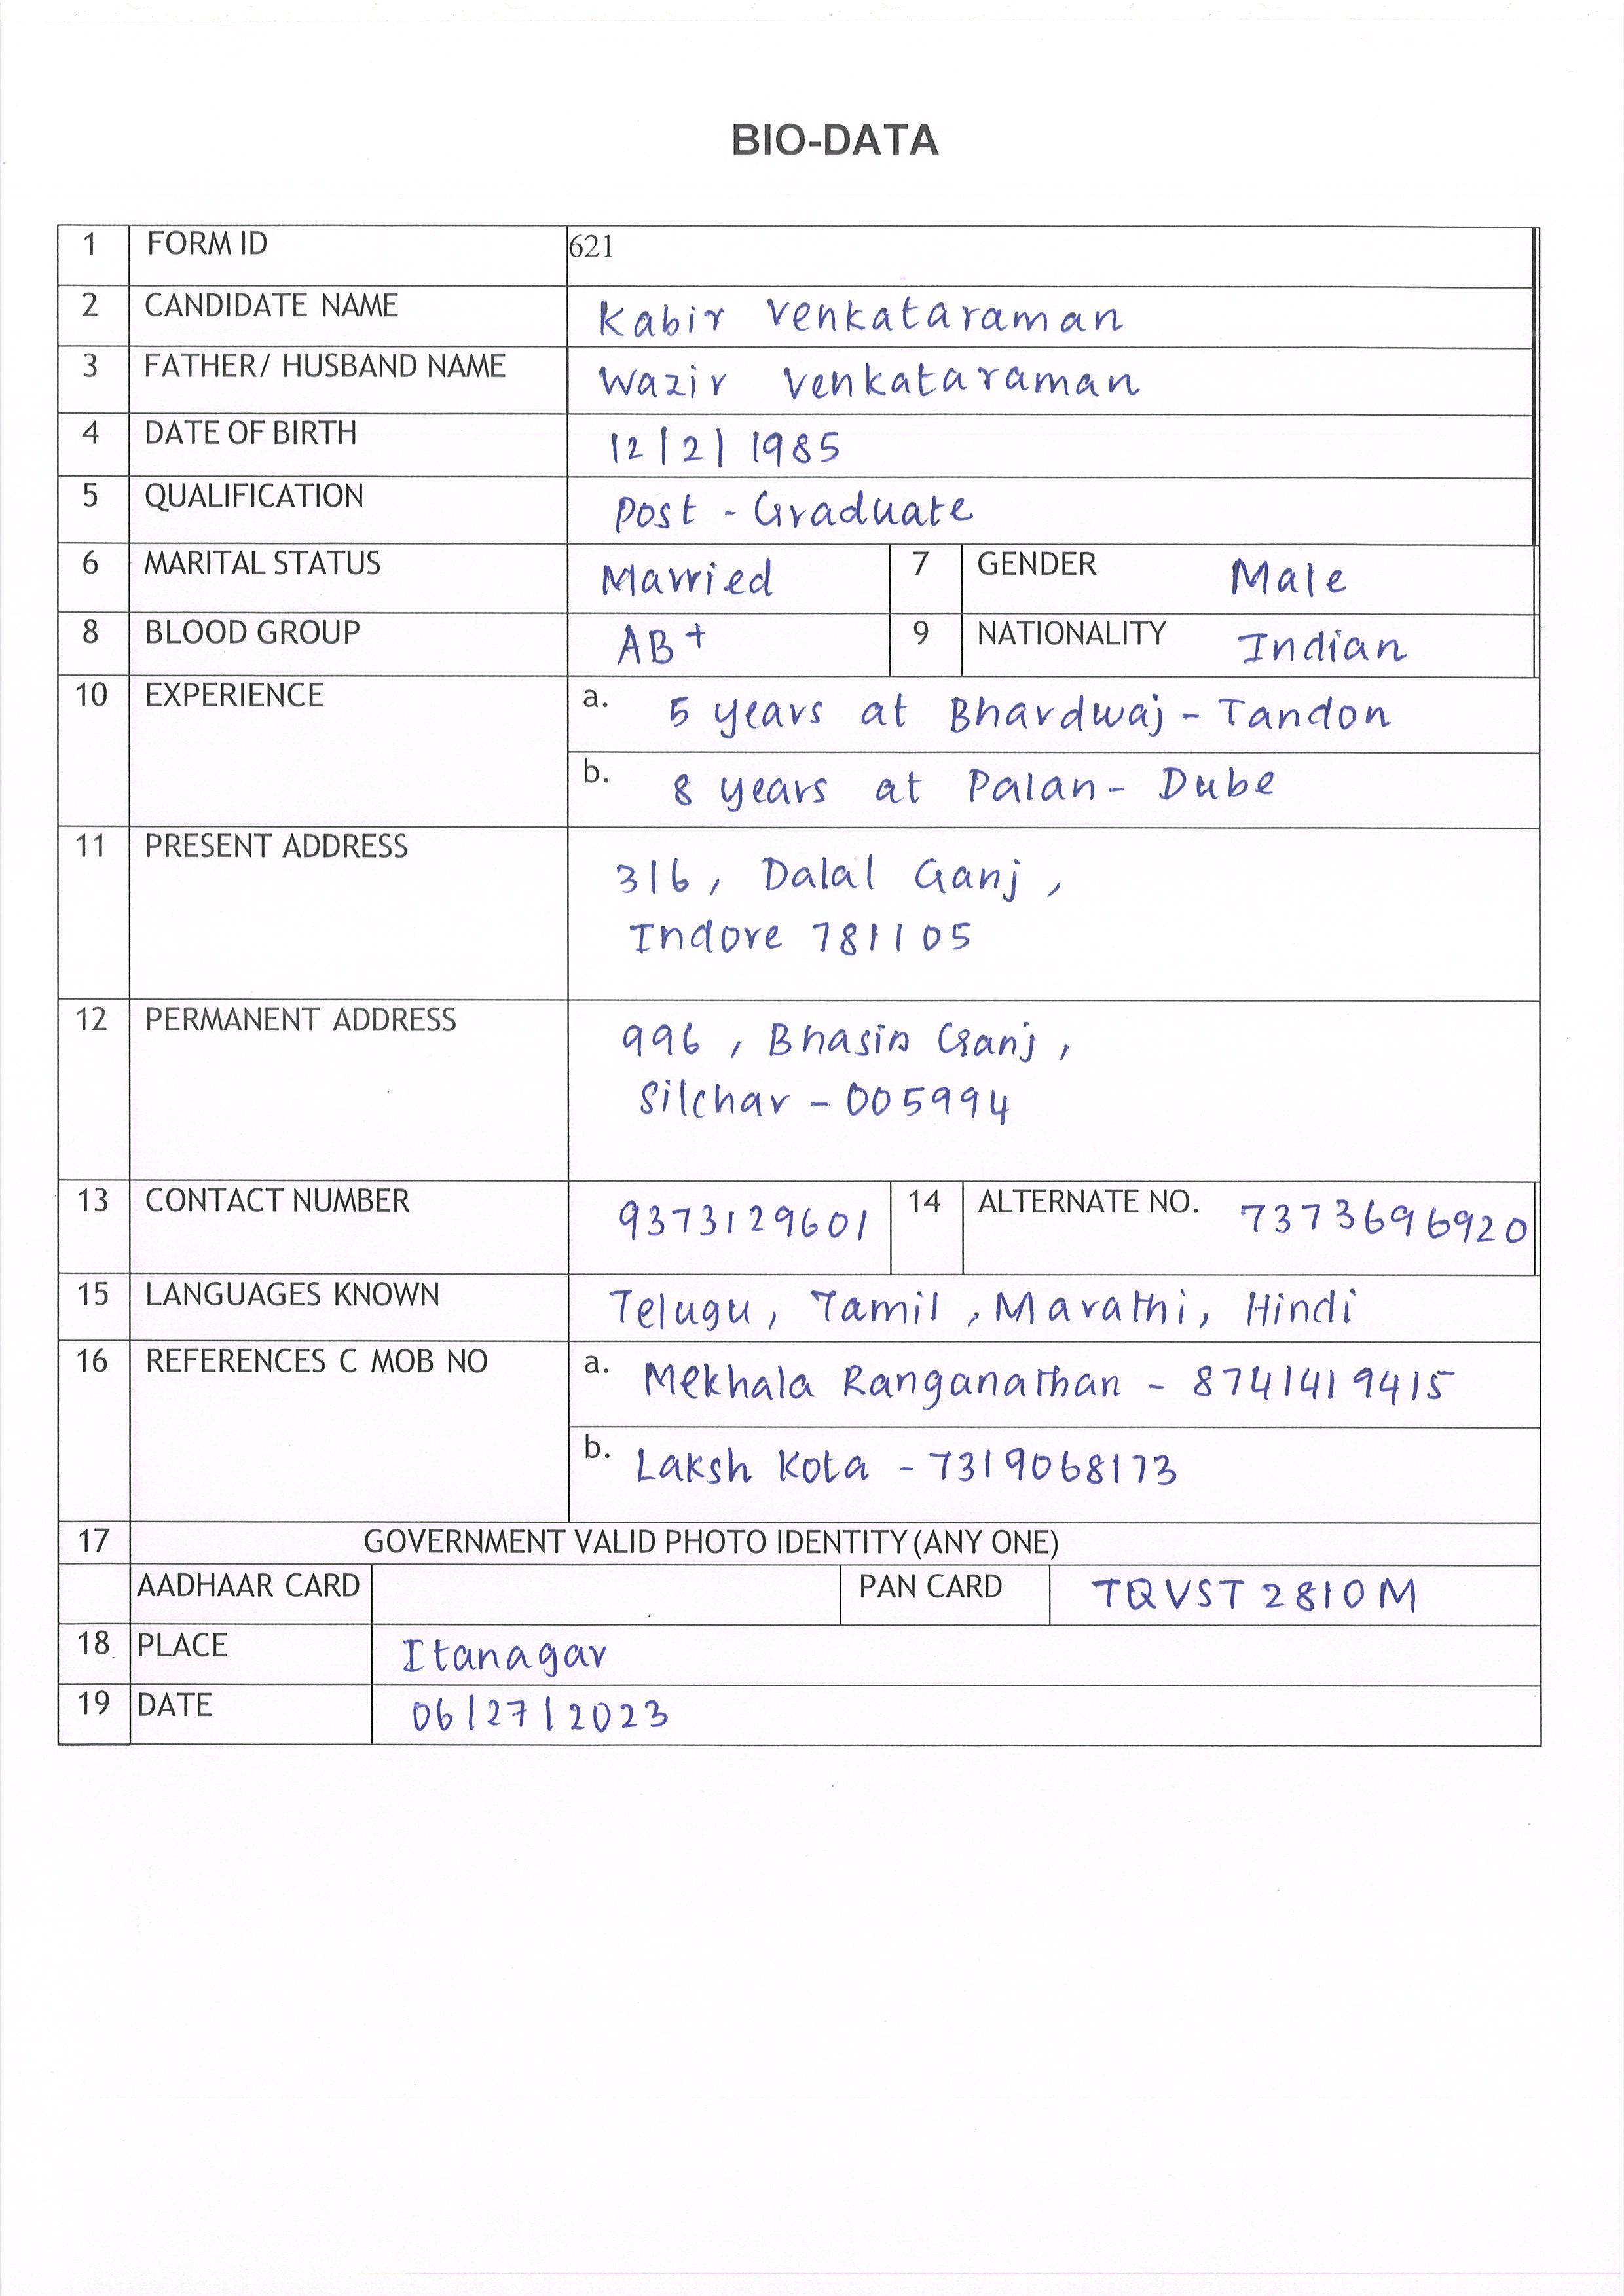 BIO-DATA
1 FORM ID 621
2 CANDIDATE NAME Kabir Venkataraman
3 FATHER/ HUSBAND NAME Wazir Venkataraman
4 DATE OF BIRTH 12/2/1985
5 QUALIFICATION Post - Graduate
6 MARITAL STATUS Married 7 GENDER Male
8 BLOOD GROUP AB+ 9 NATIONALITY Indian
10 EXPERIENCE a. 5 years at Bhardwaj - Tandon
b. 8 years at Palan - Dube
11 PRESENT ADDRESS 316, Dalal Ganj,
Indore 781105
12 PERMANENT ADDRESS 996, Bhasin Ganj,
Silchar - 005994
13 CONTACT NUMBER 9373129601 14 ALTERNATE NO. 7373696920
15 LANGUAGES KNOWN Telugu, Tamil, Marathi, Hindi
16 REFERENCES C MOB NO a. Mekhala Ranganathan - 8741419415
b. Laksh Kota - 7319068173
17 GOVERNMENT VALID PHOTO IDENTITY (ANY ONE)
AADHAAR CARD PAN CARD TQVST2810M
18 PLACE Itanagar
19 DATE 06/27/2023